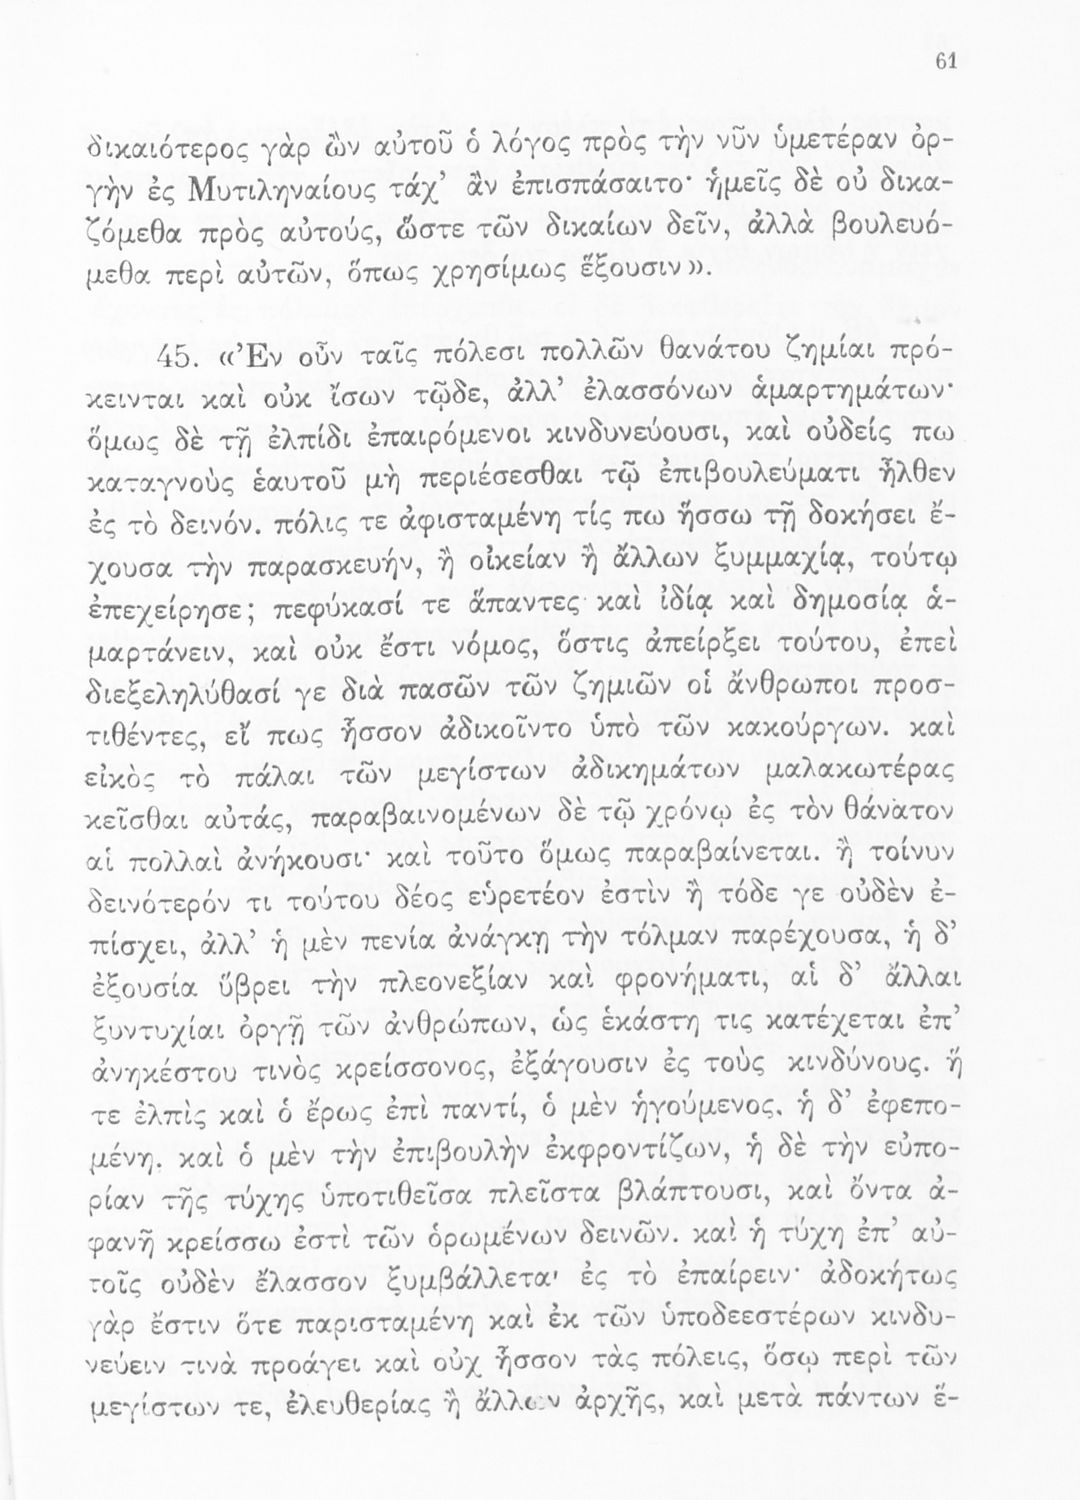 61
δικαιότερος γὰρ ὢν αὐτοῦ ὁ λόγος πρὸς τὴν νῦν ὑμετέραν ὀρ-
γὴν ἐς Μυτιληναίους τάχ’ ἂν ἐπισπάσαιτο· ἡμεῖς δὲ οὐ δικα-
ζόμεθα πρὸς αὐτούς, ὥστε τῶν δικαίων δεῖν, ἀλλὰ βουλευό-
μεθα περὶ αὐτῶν, ὅπως χρησίμως ἕξουσιν».
45. «Ἐν οὖν ταῖς πόλεσι πολλῶν θανάτου ζημίαι πρό-
κεινται καὶ οὐκ ἴσων τῷδε, ἀλλ’ ἐλασσόνων ἁμαρτημάτων·
ὅμως δὲ τῇ ἐλπίδι ἐπαιρόμενοι κινδυνεύουσι, καὶ οὐδείς πω
καταγνοὺς ἑαυτοῦ μὴ περιέσεσθαι τῷ ἐπιβουλεύματι ἦλθεν
ἐς τὸ δεινόν. πόλις τε ἀφισταμένη τίς πω ἥσσω τῇ δοκήσει ἔ-
χουσα τὴν παρασκευήν, ἢ οἰκείαν ἢ ἄλλων ξυμμαχίᾳ, τούτῳ
ἐπεχείρησε; πεφύκασί τε ἅπαντες καὶ ἰδίᾳ καὶ δημοσίᾳ ἁ-
μαρτάνειν, καὶ οὐκ ἔστι νόμος, ὅστις ἀπείρξει τούτου, ἐπεὶ
διεξεληλύθασί γε διὰ πασῶν τῶν ζημιῶν οἱ ἄνθρωποι προσ-
τιθέντες, εἴ πως ἧσσον ἀδικοῖντο ὑπὸ τῶν κακούργων. καὶ
εἰκὸς τὸ πάλαι τῶν μεγίστων ἀδικημάτων μαλακωτέρας
κεῖσθαι αὐτάς, παραβαινομένων δὲ τῷ χρόνῳ ἐς τὸν θάνατον
αἱ πολλαὶ ἀνήκουσι· καὶ τοῦτο ὅμως παραβαίνεται. ἢ τοίνυν
δεινότερόν τι τούτου δέος εὑρετέον ἐστὶν ἢ τόδε γε οὐδὲν ἐ-
πίσχει, ἀλλ’ ἡ μὲν πενία ἀνάγκῃ τὴν τόλμαν παρέχουσα, ἡ δ’
ἐξουσία ὕβρει τὴν πλεονεξίαν καὶ φρονήματι, αἱ δ’ ἄλλαι
ξυντυχίαι ὀργῇ τῶν ἀνθρώπων, ὡς ἑκάστη τις κατέχεται ἐπ’
ἀνηκέστου τινὸς κρείσσονος, ἐξάγουσιν ἐς τοὺς κινδύνους. ἥ
τε ἐλπὶς καὶ ὁ ἔρως ἐπὶ παντί, ὁ μὲν ἡγούμενος, ἡ δ’ ἐφεπο-
μένη, καὶ ὁ μὲν τὴν ἐπιβουλὴν ἐκφροντίζων, ἡ δὲ τὴν εὐπο-
ρίαν τῆς τύχης ὑποτιθεῖσα πλεῖστα βλάπτουσι, καὶ ὄντα ἀ-
φανῆ κρείσσω ἐστὶ τῶν ὁρωμένων δεινῶν. καὶ ἡ τύχη ἐπ’ αὐ-
τοῖς οὐδὲν ἔλασσον ξυμβάλλεται ἐς τὸ ἐπαίρειν· ἀδοκήτως
γὰρ ἔστιν ὅτε παρισταμένη καὶ ἐκ τῶν ὑποδεεστέρων κινδυ-
νεύειν τινὰ προάγει καὶ οὐχ ἧσσον τὰς πόλεις, ὅσῳ περὶ τῶν
μεγίστων τε, ἐλευθερίας ἢ ἄλλων ἀρχῆς, καὶ μετὰ πάντων ἕ-